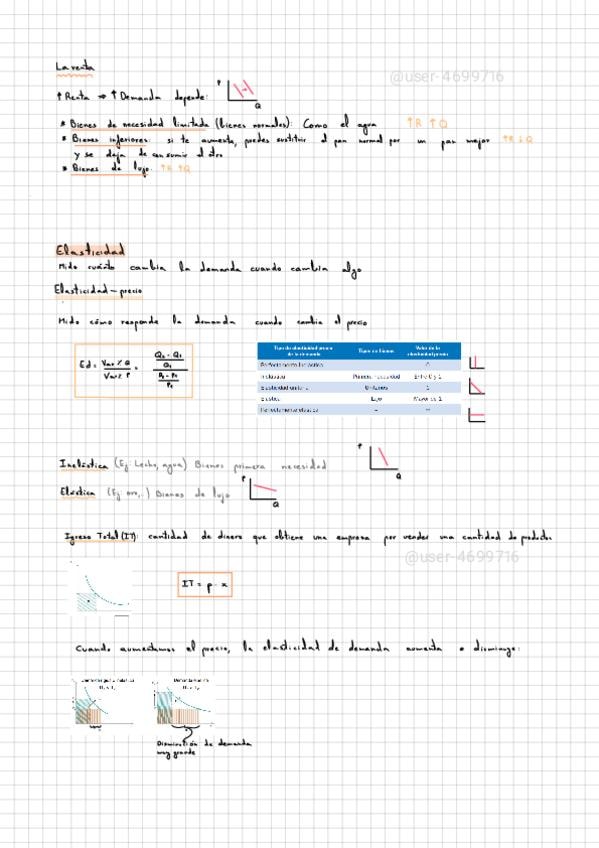 La renta
@user-4699716
↑ Renta ⇒ ↑ Demanda depende:
P
Q
* Bienes de necesidad limitada (bienes normales): Como el agua ↑R ↑Q
* Bienes inferiores: si te aumenta, puedes sustituir el pan normal por un pan mejor ↑R ↓Q
y se deja de consumir el otro
* Bienes de lujo: ↑R ↑Q
Elasticidad
Mide cuánto cambia la demanda cuando cambia algo
Elasticidad-precio
Mide cómo responde la demanda cuando cambia el precio
Tipo de elasticidad precio de la demanda Tipos de bienes Valor de la elasticidad precio
Perfectamente inelástica - 0
Inelástica Primera necesidad Entre 0 y 1
Elasticidad unitaria Unitarios 1
Elástica Lujo Mayor de 1
Perfectamente elástica - ∞
Inelástica (Ej: Leche, agua) Bienes primera necesidad
P
Q
Elástica (Ej: oro,..) Bienes de lujo
P
Q
Ingreso Total (IT): cantidad de dinero que obtiene una empresa por vender una cantidad de productos
@user-4699716
IT = p · x
Cuando aumentamos el precio, la elasticidad de demanda aumenta o disminuye:
Disminución de demanda
muy grande